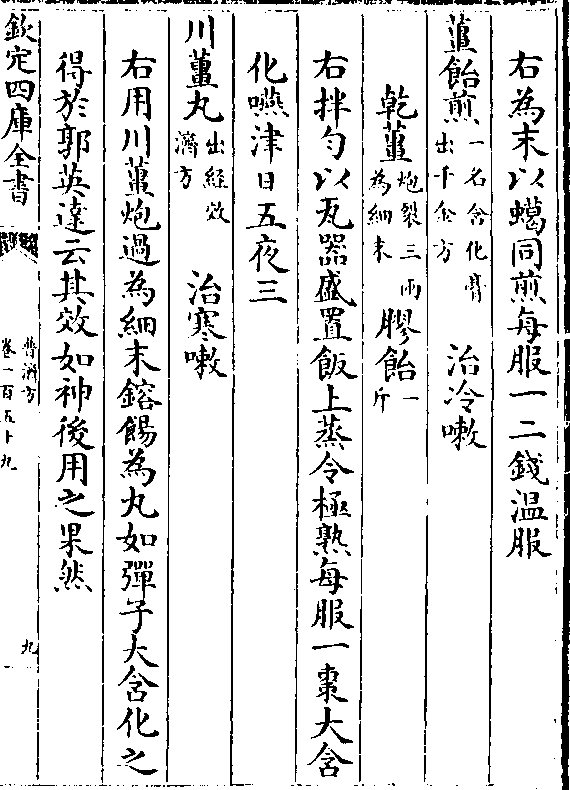 右為末以蠟同煎每服一二錢温服
薑飴煎一名含化膏出千金方 治冷嗽
乾薑炮裂三兩為細末 膠飴一斤
右拌匀以瓦器盛置飯上蒸令極熟每服一棗大含
化嚥津日五夜三
川薑丸出經效濟方 治寒嗽
右用川薑炮過為細末鎔餳為丸如彈子大含化之
得於郭英逹云其效如神後用之果然
欽定四庫全書
普濟方
卷一百五十九
九